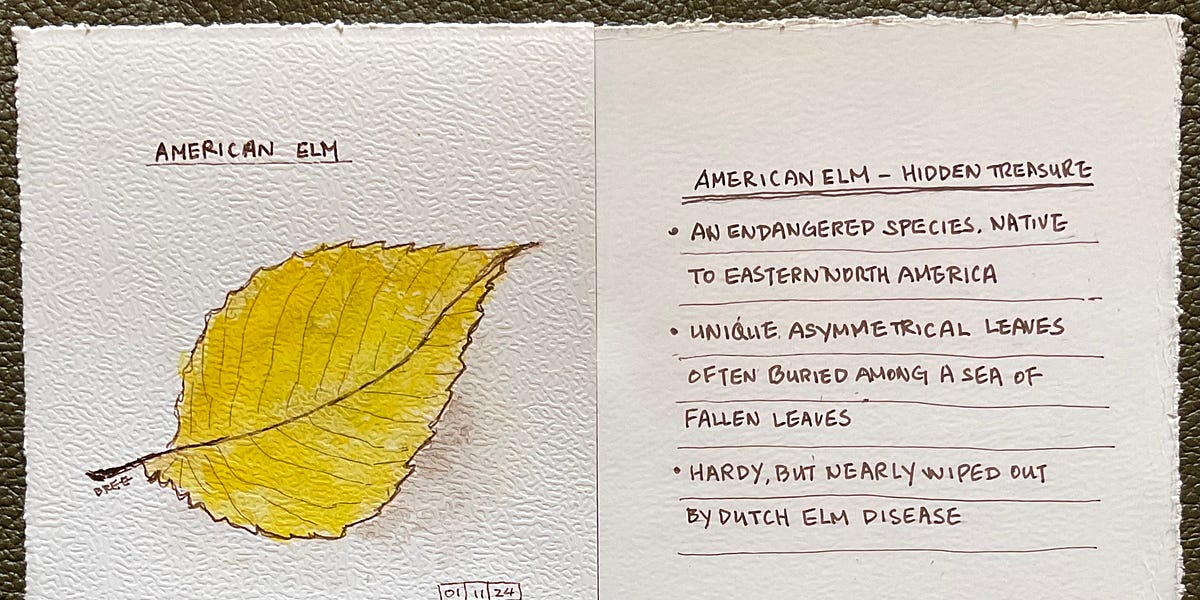 AMERICAN ELM
DREE
01 11 24
AMERICAN ELM – HIDDEN TREASURE
• AN ENDANGERED SPECIES, NATIVE
TO EASTERN NORTH AMERICA
• UNIQUE ASYMMETRICAL LEAVES
OFTEN BURIED AMONG A SEA OF
FALLEN LEAVES
• HARDY, BUT NEARLY WIPED OUT
BY DUTCH ELM DISEASE